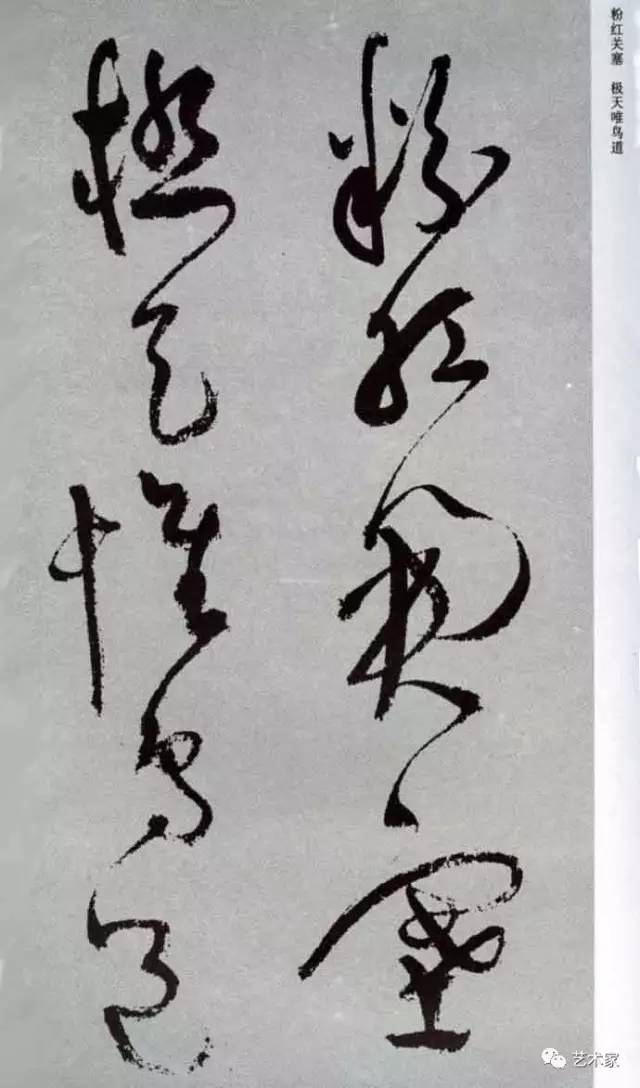 粉红关塞 极天唯鸟道
粉红關塞
極天惟鳥道
艺术家